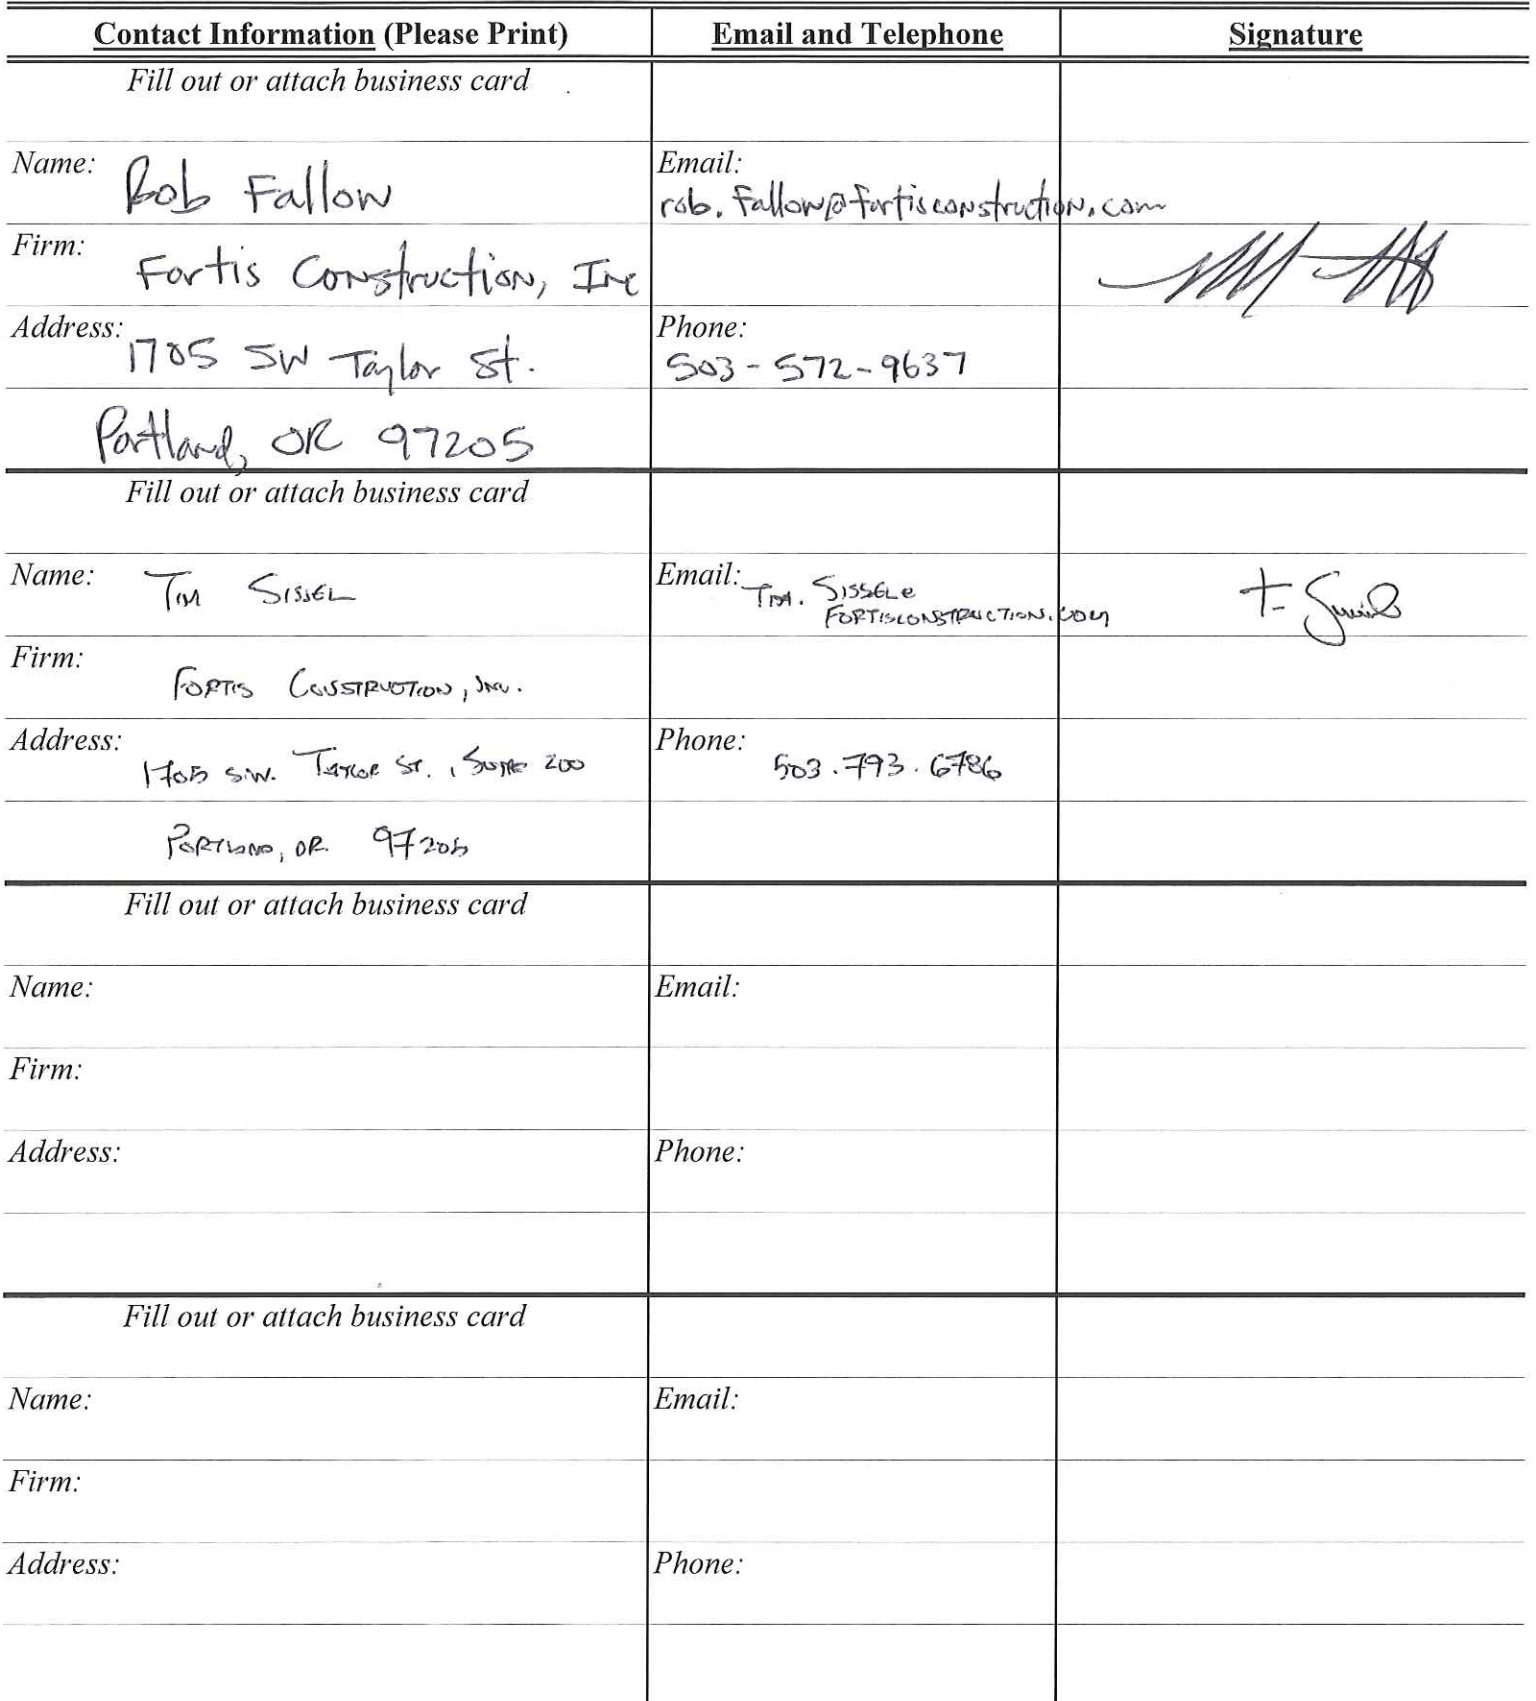 Contact Information (Please Print) Email and Telephone Signature
Fill out or attach business card
Name: Rob Fallow Email:
rob.fallow@fortisconstruction.com
Firm: Fortis Construction, Inc
Address: 1705 SW Taylor St. Phone:
503-572-9637
Portland, OR 97205
Fill out or attach business card
Name: TIM SISSEL Email: TIM.SISSEL@
FORTISCONSTRUCTION.COM
Firm:
FORTIS CONSTRUCTION, INC.
Address: Phone:
1705 S.W. TAYLOR ST., SUITE 200 503.793.6786
PORTLAND, OR 97205
Fill out or attach business card
Name: Email:
Firm:
Address: Phone:
Fill out or attach business card
Name: Email:
Firm:
Address: Phone: